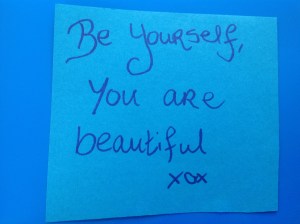 Be Yourself,
You are
beautiful
xox